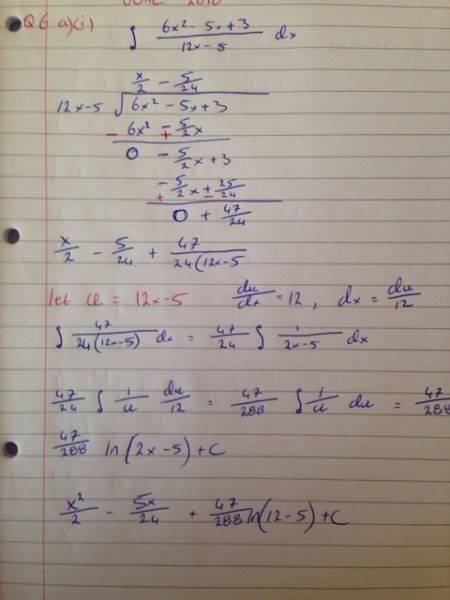 June 2010
Q6 a)(i)
∫ (6x² - 5x + 3)/(12x - 5) dx
x/2 - 5/24
12x-5 √ 6x² - 5x + 3
- 6x² -+ 5/2 x
0 - 5/2 x + 3
-+ 5/2 x +- 25/24
0 + 47/24
x/2 - 5/24 + 47/(24(12x-5
let u = 12x-5 du/dx = 12 , dx = du/12
∫ 47/(24(12x-5)) dx = 47/24 ∫ 1/(2x-5) dx
47/24 ∫ 1/u du/12 = 47/288 ∫ 1/u du = 47/288
47/288 ln(2x-5)+C
x²/2 - 5x/24 + 47/288 ln(12-5)+C